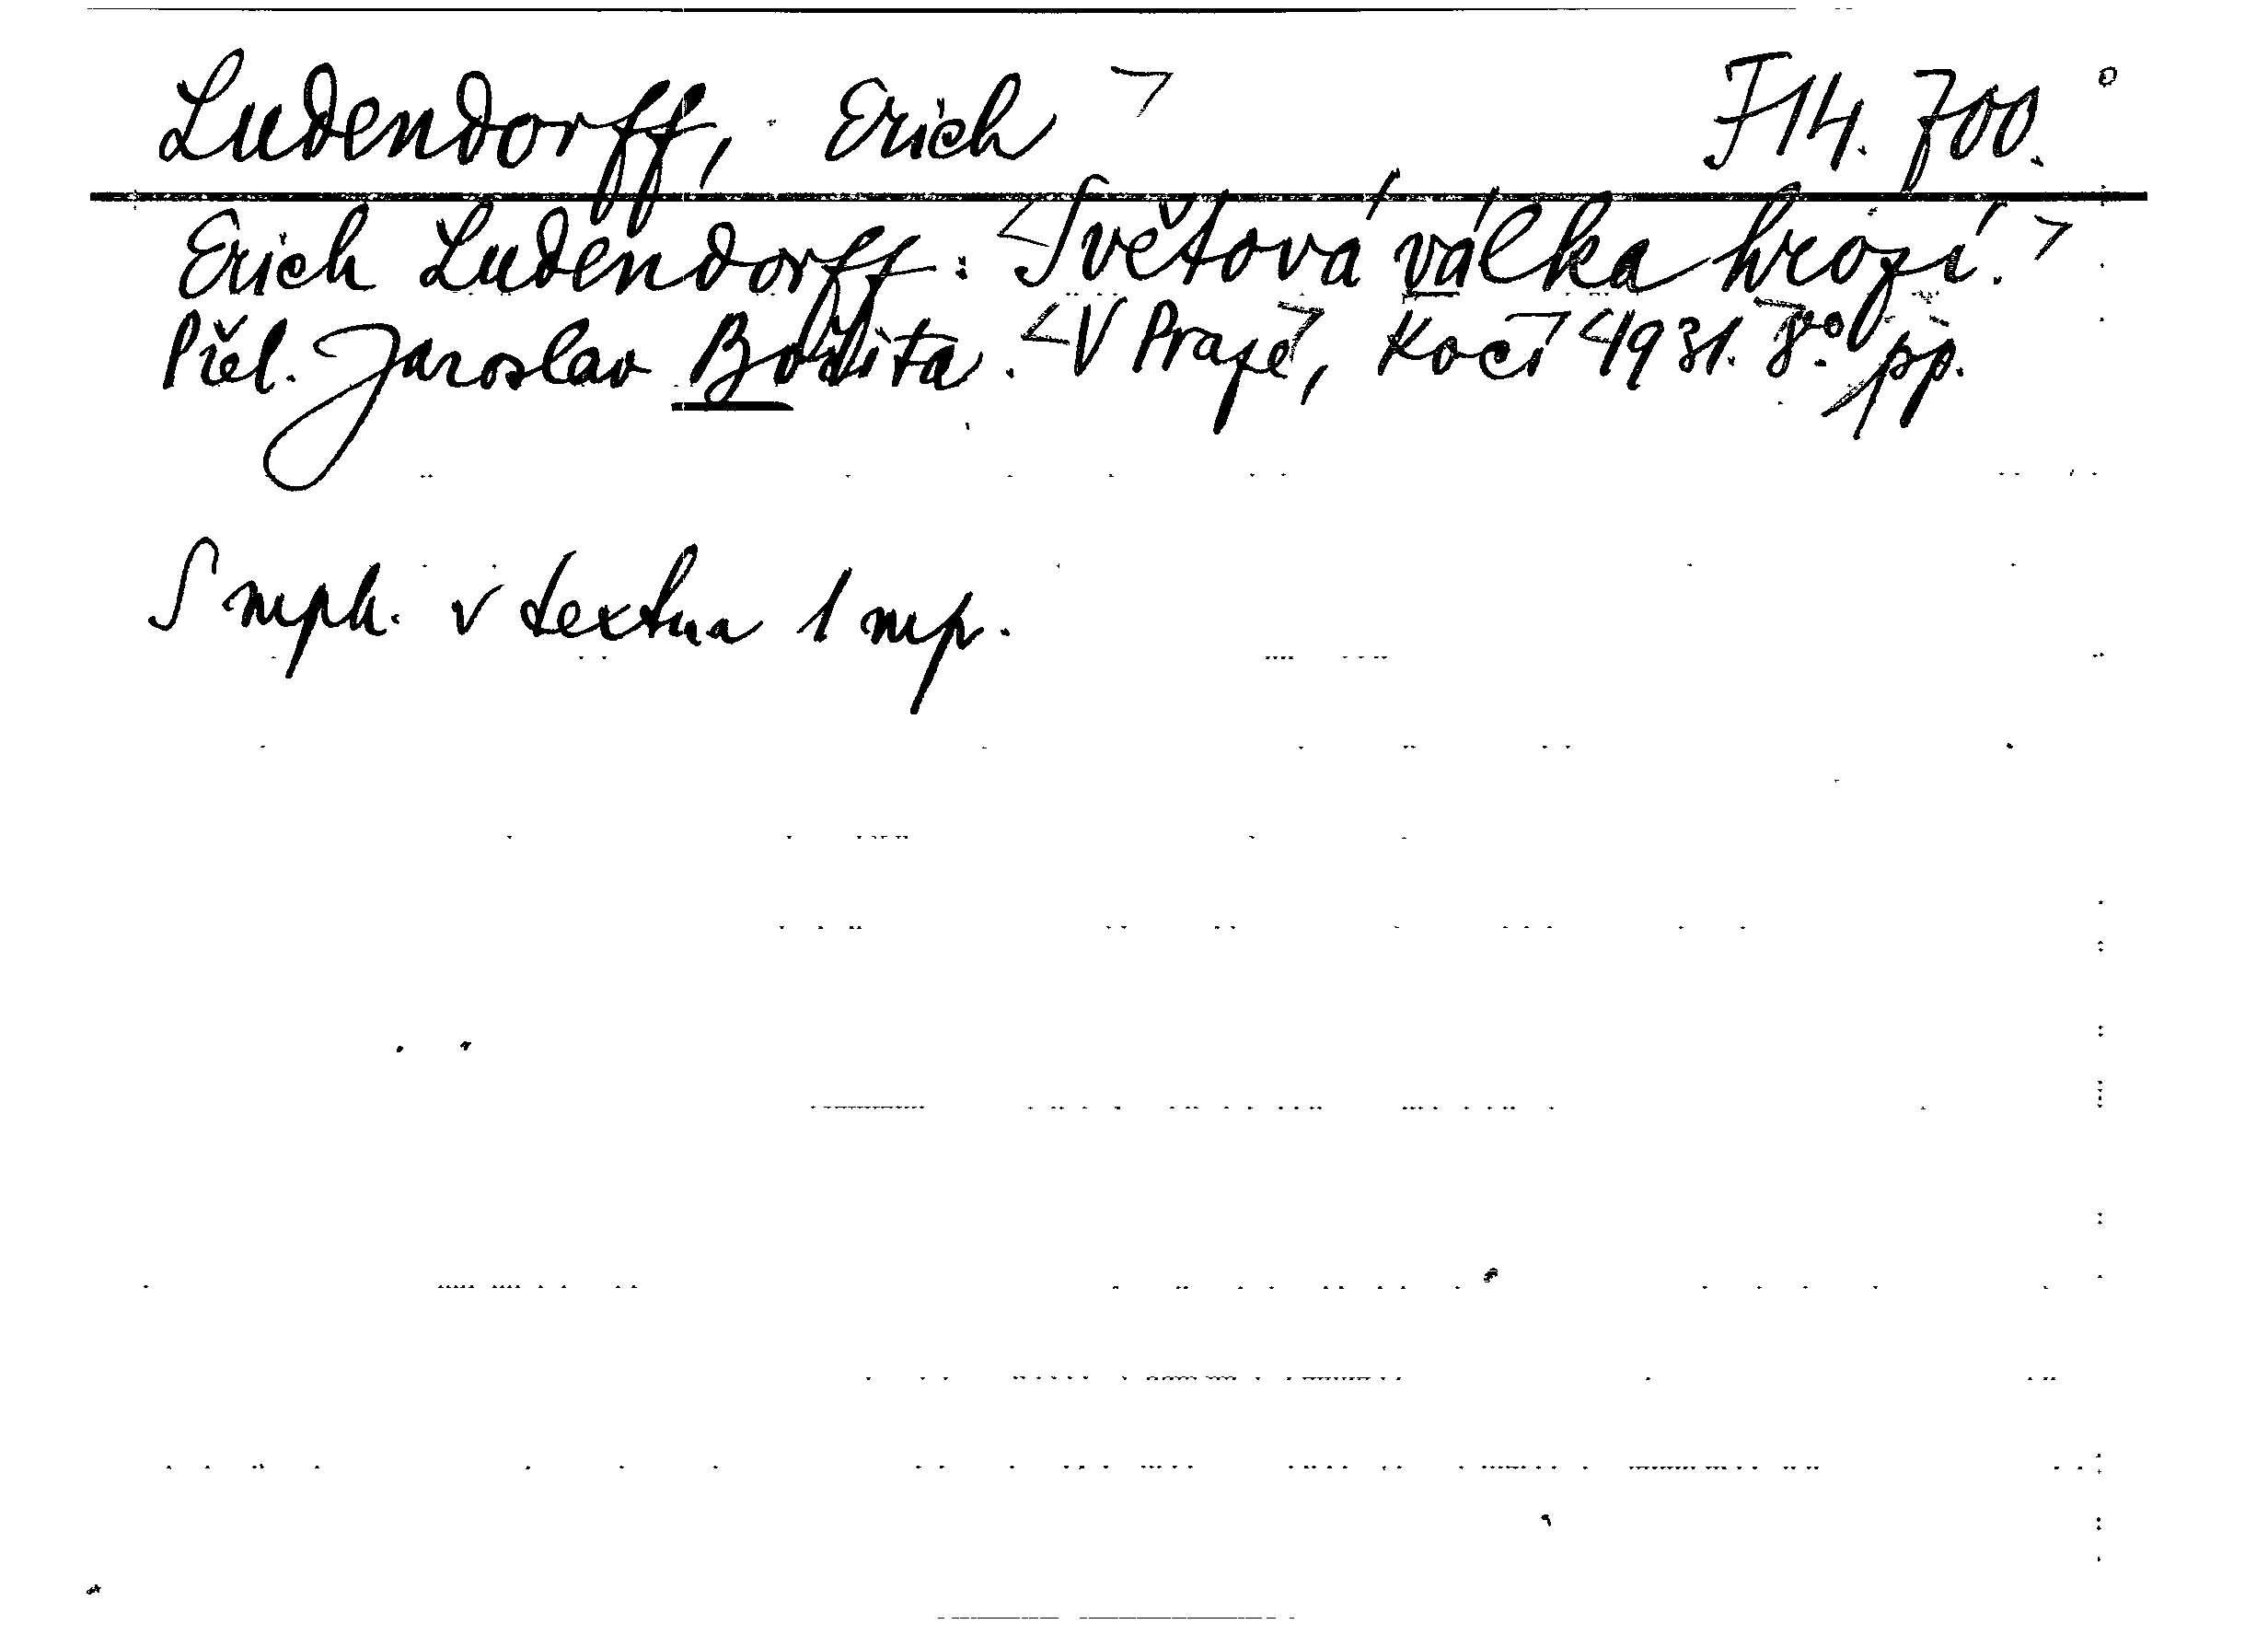 Ludendorff, Erich > F 14.700.
Erich Ludendorff: <Světová válka hrozí.>
Přel. Jaroslav Bořita. <V Praze>, Kočí <1931.> 8° pp.
S mph. v textu a 1 mp.